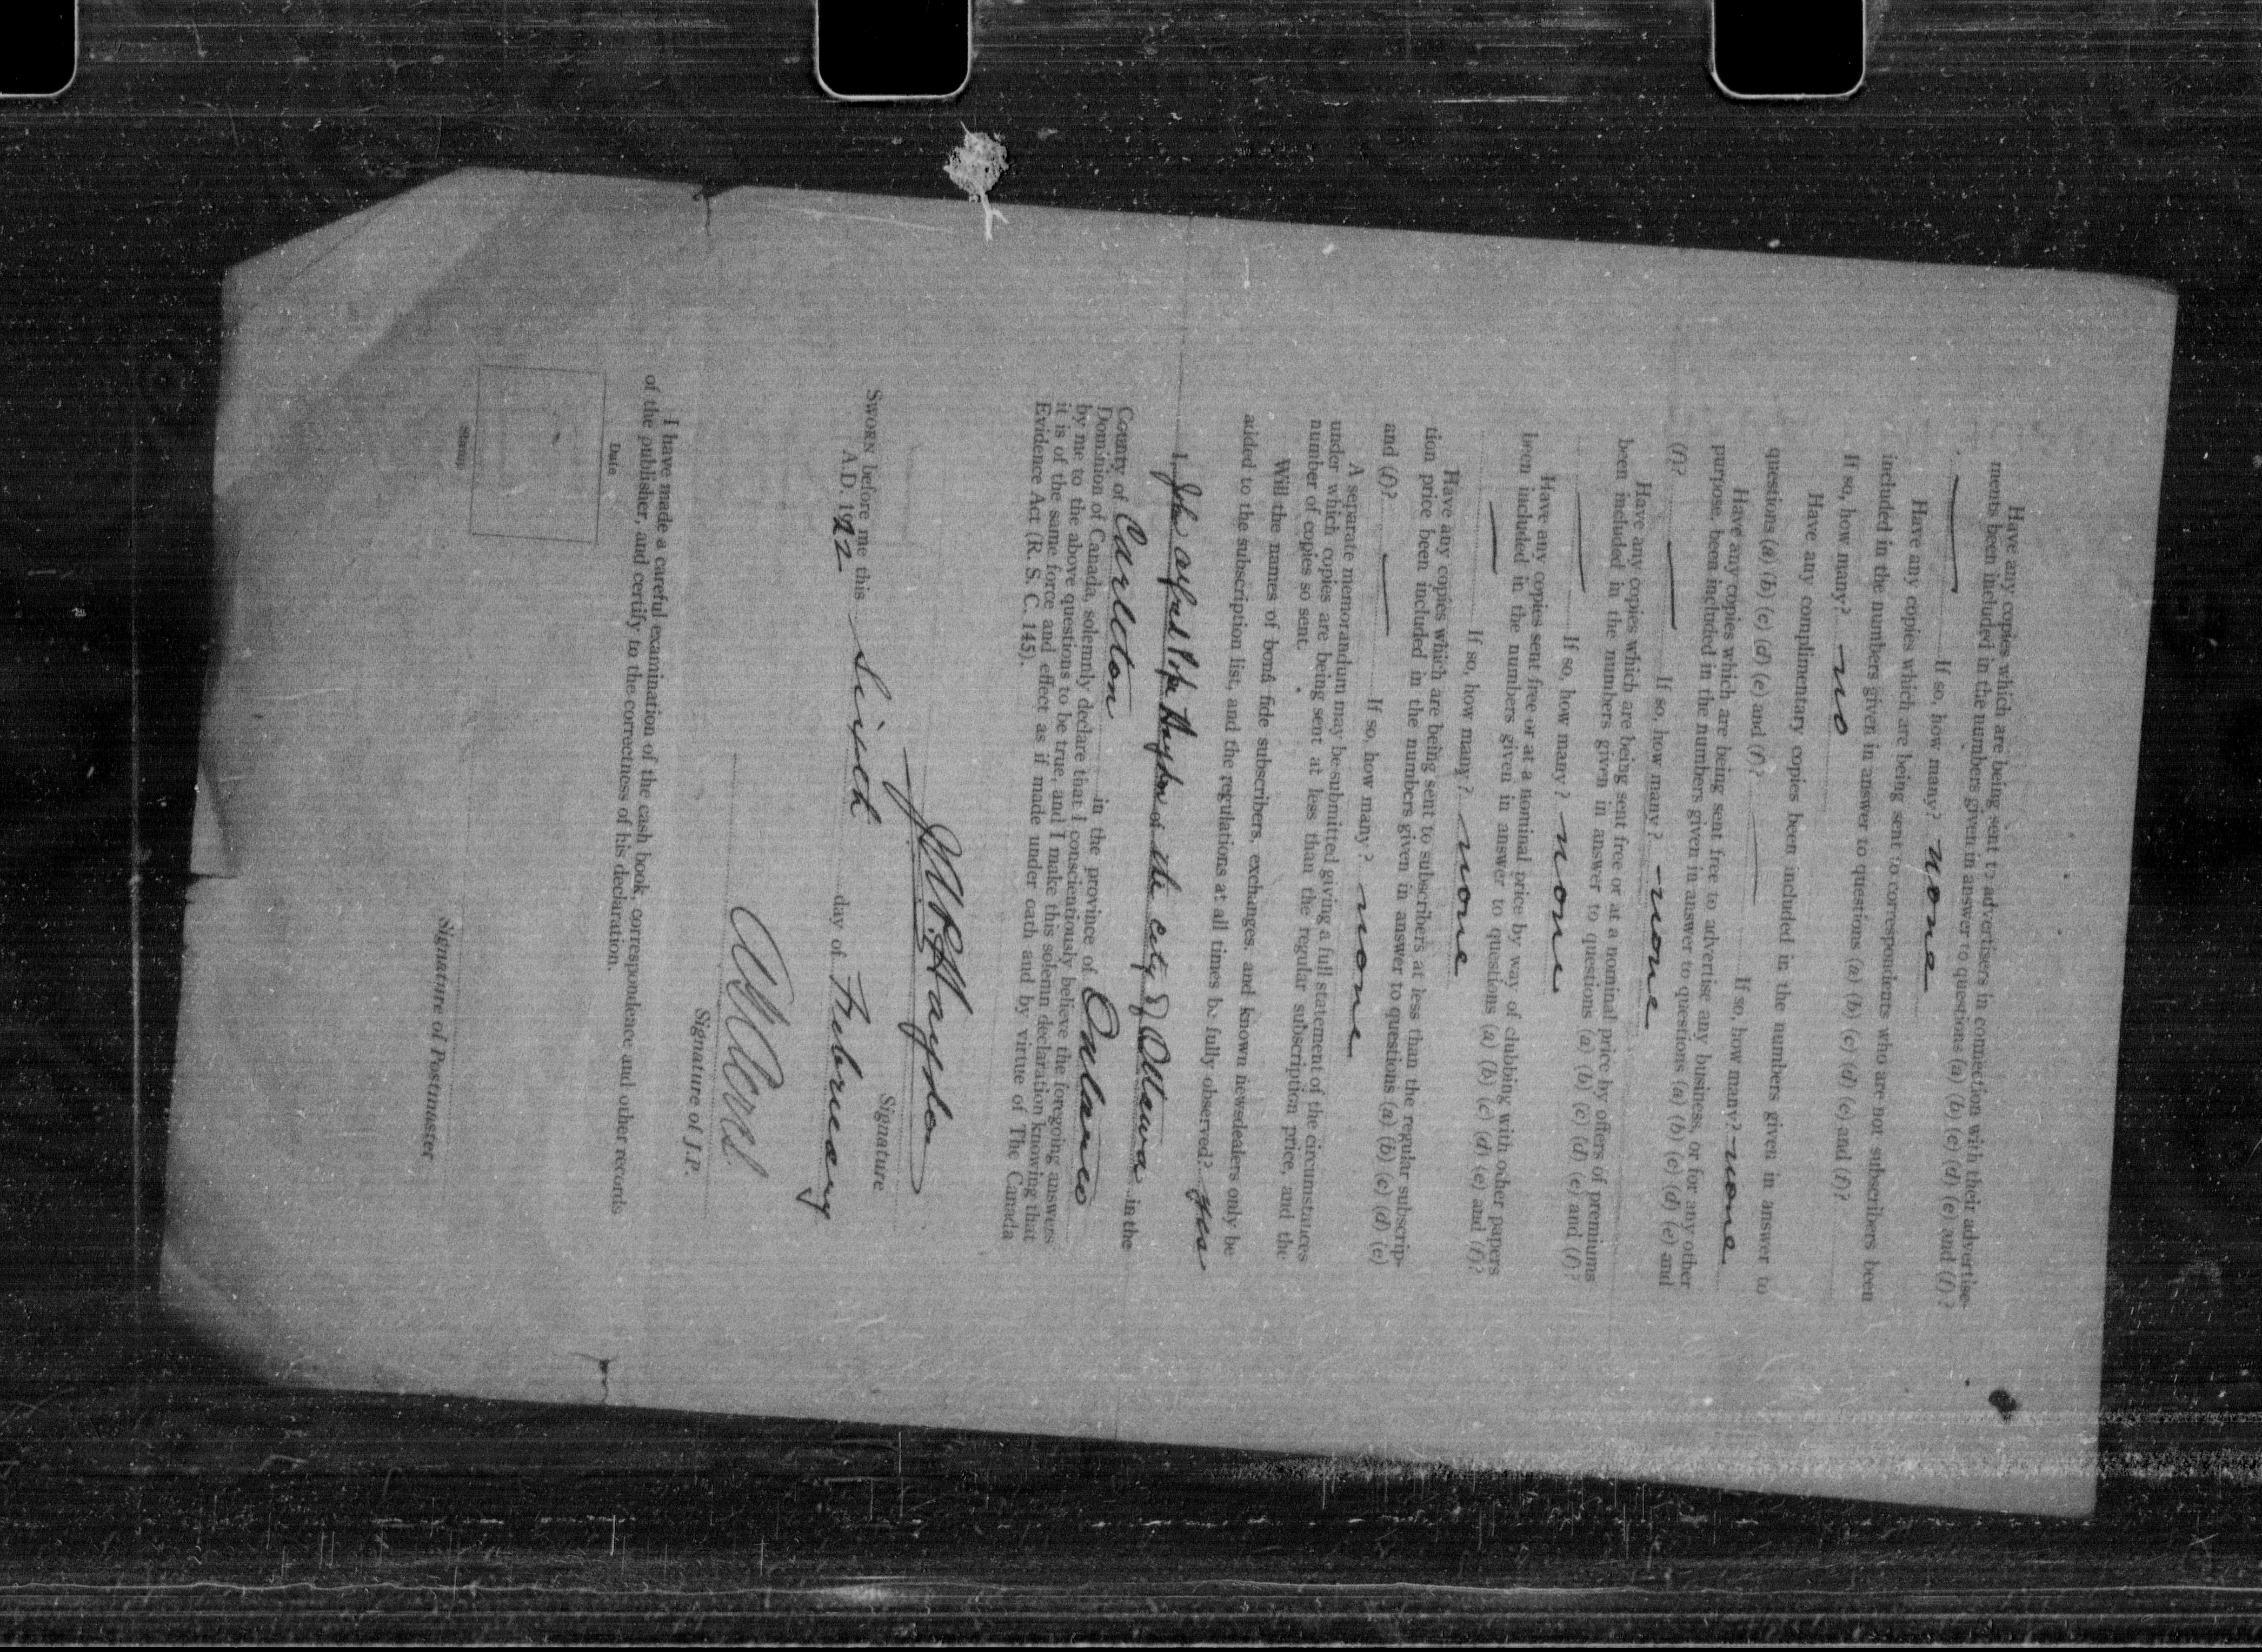 Have any copies which are being sent to advertisers in connection with their advertise-
ments been included in the numbers given in answer to questions (a) (b) (c) (d) (e) and (f)?
If so, how many? none
Have any copies which are being sent to correspondents who are not subscribers been
included in the numbers given in answer to questions (a) (b) (c) (d) (e) and (f)?
If so, how many? no
Have any complimentary copies been included in the numbers given in answer to
questions (a) (b) (c) (d) (e) and (f)? If so, how many? none
Have any copies which are being sent free to advertise any business, or for any other
purpose, been included in the numbers given in answer to questions (a) (b) (c) (d) (e) and
(f)? If so, how many? none
Have any copies which are being sent free or at a nominal price by offers of premiums
been included in the numbers given in answer to questions (a) (b) (c) (d) (e) and (f)?
If so, how many? none
Have any copies sent free or at a nominal price by way of clubbing with other papers
been included in the numbers given in answer to questions (a) (b) (c) (d) (e) and (f)?
If so, how many? none
Have any copies which are being sent to subscribers at less than the regular subscrip-
tion price been included in the numbers given in answer to questions (a) (b) (c) (d) (e)
and (f)? If so, how many? none
A separate memorandum may be submitted giving a full statement of the circumstances
under which copies are being sent at less than the regular subscription price, and the
number of copies so sent.
Will the names of bonâ fide subscribers, exchanges, and known newsdealers only be
added to the subscription list, and the regulations at all times be fully observed? yes
I, John Hayden of the city of Ottawa in the
County of Carleton in the province of Ontario
Dominion of Canada, solemnly declare that I conscientiously believe the foregoing answers
by me to the above questions to be true, and I make this solemn declaration knowing that
it is of the same force and effect as if made under oath and by virtue of The Canada
Evidence Act (R. S. C. 145).
Hayden
Signature
SWORN before me this Sixth day of February
A.D. 1922
Signature of J.P.
I have made a careful examination of the cash book, correspondence and other records
of the publisher, and certify to the correctness of his declaration.
Date
Stamp
Signature of Postmaster